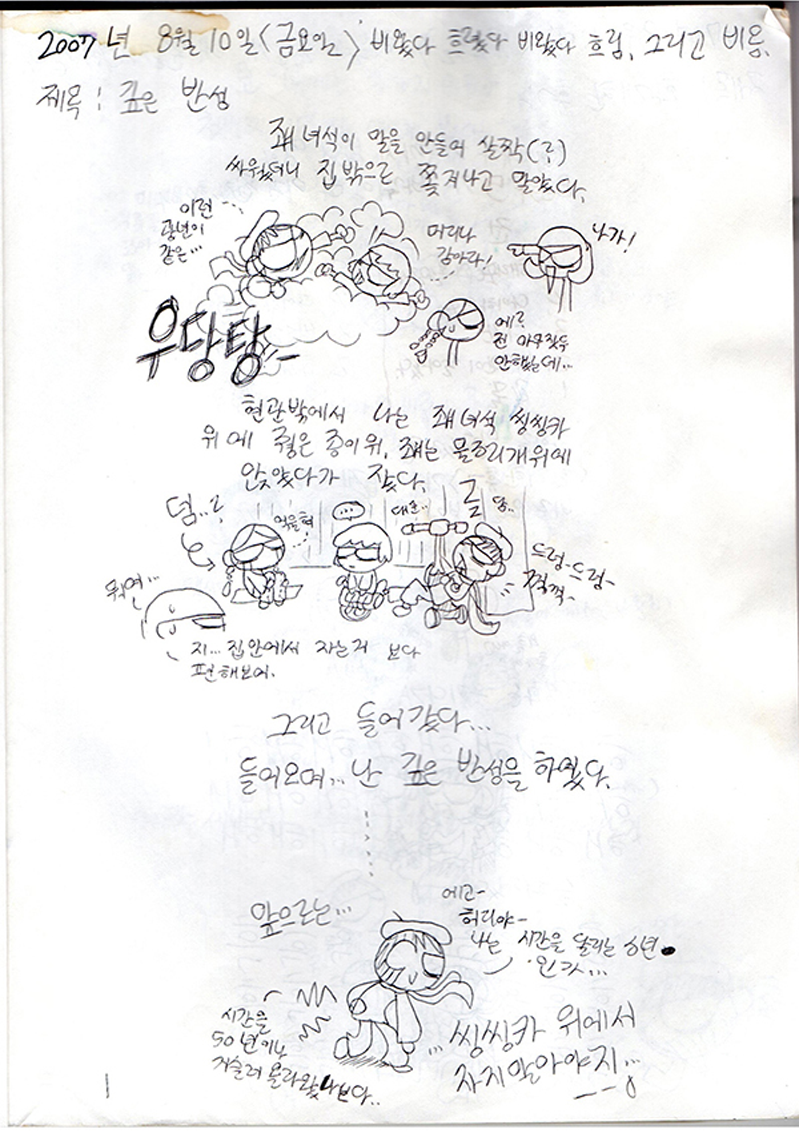 2007년 8월 10일<금요일> 비왔다 흐렸다 비왔다 흐림, 그리고 비옴.
제목 : 깊은 반성
쟤 녀석이 말을 안들어 살짝(?)
싸웠더니 집 밖으로 쫓겨나고 말았다.
이런
광년이
같은...
머리나
감아라!
나가!
우당탕-
에?
전 아무것두
안했는데...
현관밖에서 나는 쟤 녀석 씽씽카
위에 줬은 종이위, 쟤는 물조리개위에
앉았다가 잤다.
덤..?
억울혀
...!
(...)
대준..
쿨
드렁-드렁-
꺽꺽-
워며...
지... 집안에서 자는거 보다
편해보여.
그리고 들어갔다...
들어오며... 난 깊은 반성을 하였다.
앞으로는...
에고-
허리야-
나는 시간을 달리는 소년
인가...
시간을
50년이나
거슬러 올라왔나보다..
...씽씽카 위에서
자지말아야지...